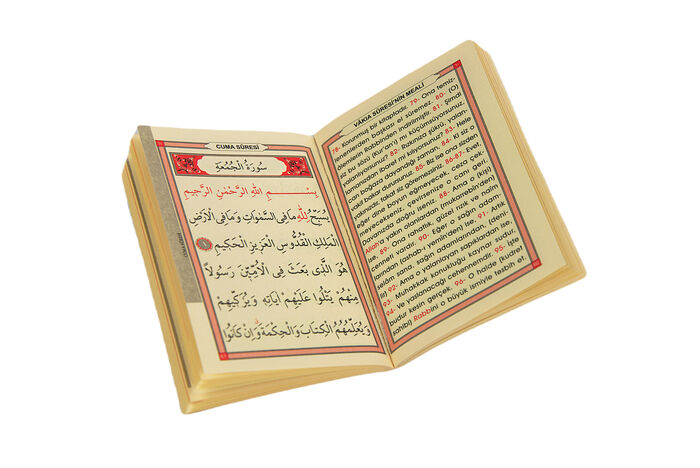 CUMA SÛRESİ
سُورَةُ الْجُمُعَةِ
بِسْمِ اللّٰهِ الرَّحْمٰنِ الرَّحِيمِ
يُسَبِّحُ لِلّٰهِ مَا فِي السَّمٰوَاتِ وَمَا فِي الْاَرْضِ
الْمَلِكِ الْقُدُّوسِ الْعَزِيزِ الْحَكِيمِ ١
هُوَ الَّذِي بَعَثَ فِي الْاُمِّيّ۪نَ رَسُولاً
مِنْهُمْ يَتْلُوا عَلَيْهِمْ اٰيَاتِهِ وَيُزَكِّيهِمْ
وَيُعَلِّمُهُمُ الْكِتَابَ وَالْحِكْمَةَ وَاِنْ كَانُوا
VÂKIA SÛRESİ'NİN MEALİ
78- Korunmuş bir kitaptadır. 79- Ona temiz-
lenenlerden başkası el süremez. 80- (O)
âlemlerin Rabbinden indirilmiştir. 81- Şimdi
siz bu sözü (Kur'an'ı) mı küçümsüyorsunuz.
yalanlıyorsunuz? 82- Rızkınıza şükrü, yalan-
lamanızdan ibaret mi kılıyorsunuz? 83- Hele
can boğaza dayandığı zaman, 84- Ki siz o
vakit bakar durursunuz. 85- Biz ise ona sizden
yakınızdır, fakat siz göremezsiniz. 86-87- Evet,
eğer dine boyun eğmeyecek, ceza çek-
meyecekseniz, çevirsenize o canı geri,
davanızda doğru iseniz! 88- Ama o (kişi)
Allah'a yakın olanlardan (mukarrebînden)
ise, 89- Ona rahatlık, güzel rızık ve naîm
cenneti vardır. 90- Eğer o sağın adam-
larından (ashab-ı yeminden) ise, 91- Artık
selâm sana, sağın adamlarından, (deni-
lir) 92- Ama o yalanlayan sapıklardan ise,
93- Muhakkak konukluğu kaynar sudur,
94- Ve yaslanacağı cehennemdir. 95- İşte
budur kesin gerçek. 96- O halde (kudret
sahibi) Rabbini o büyük ismiyle tesbih et